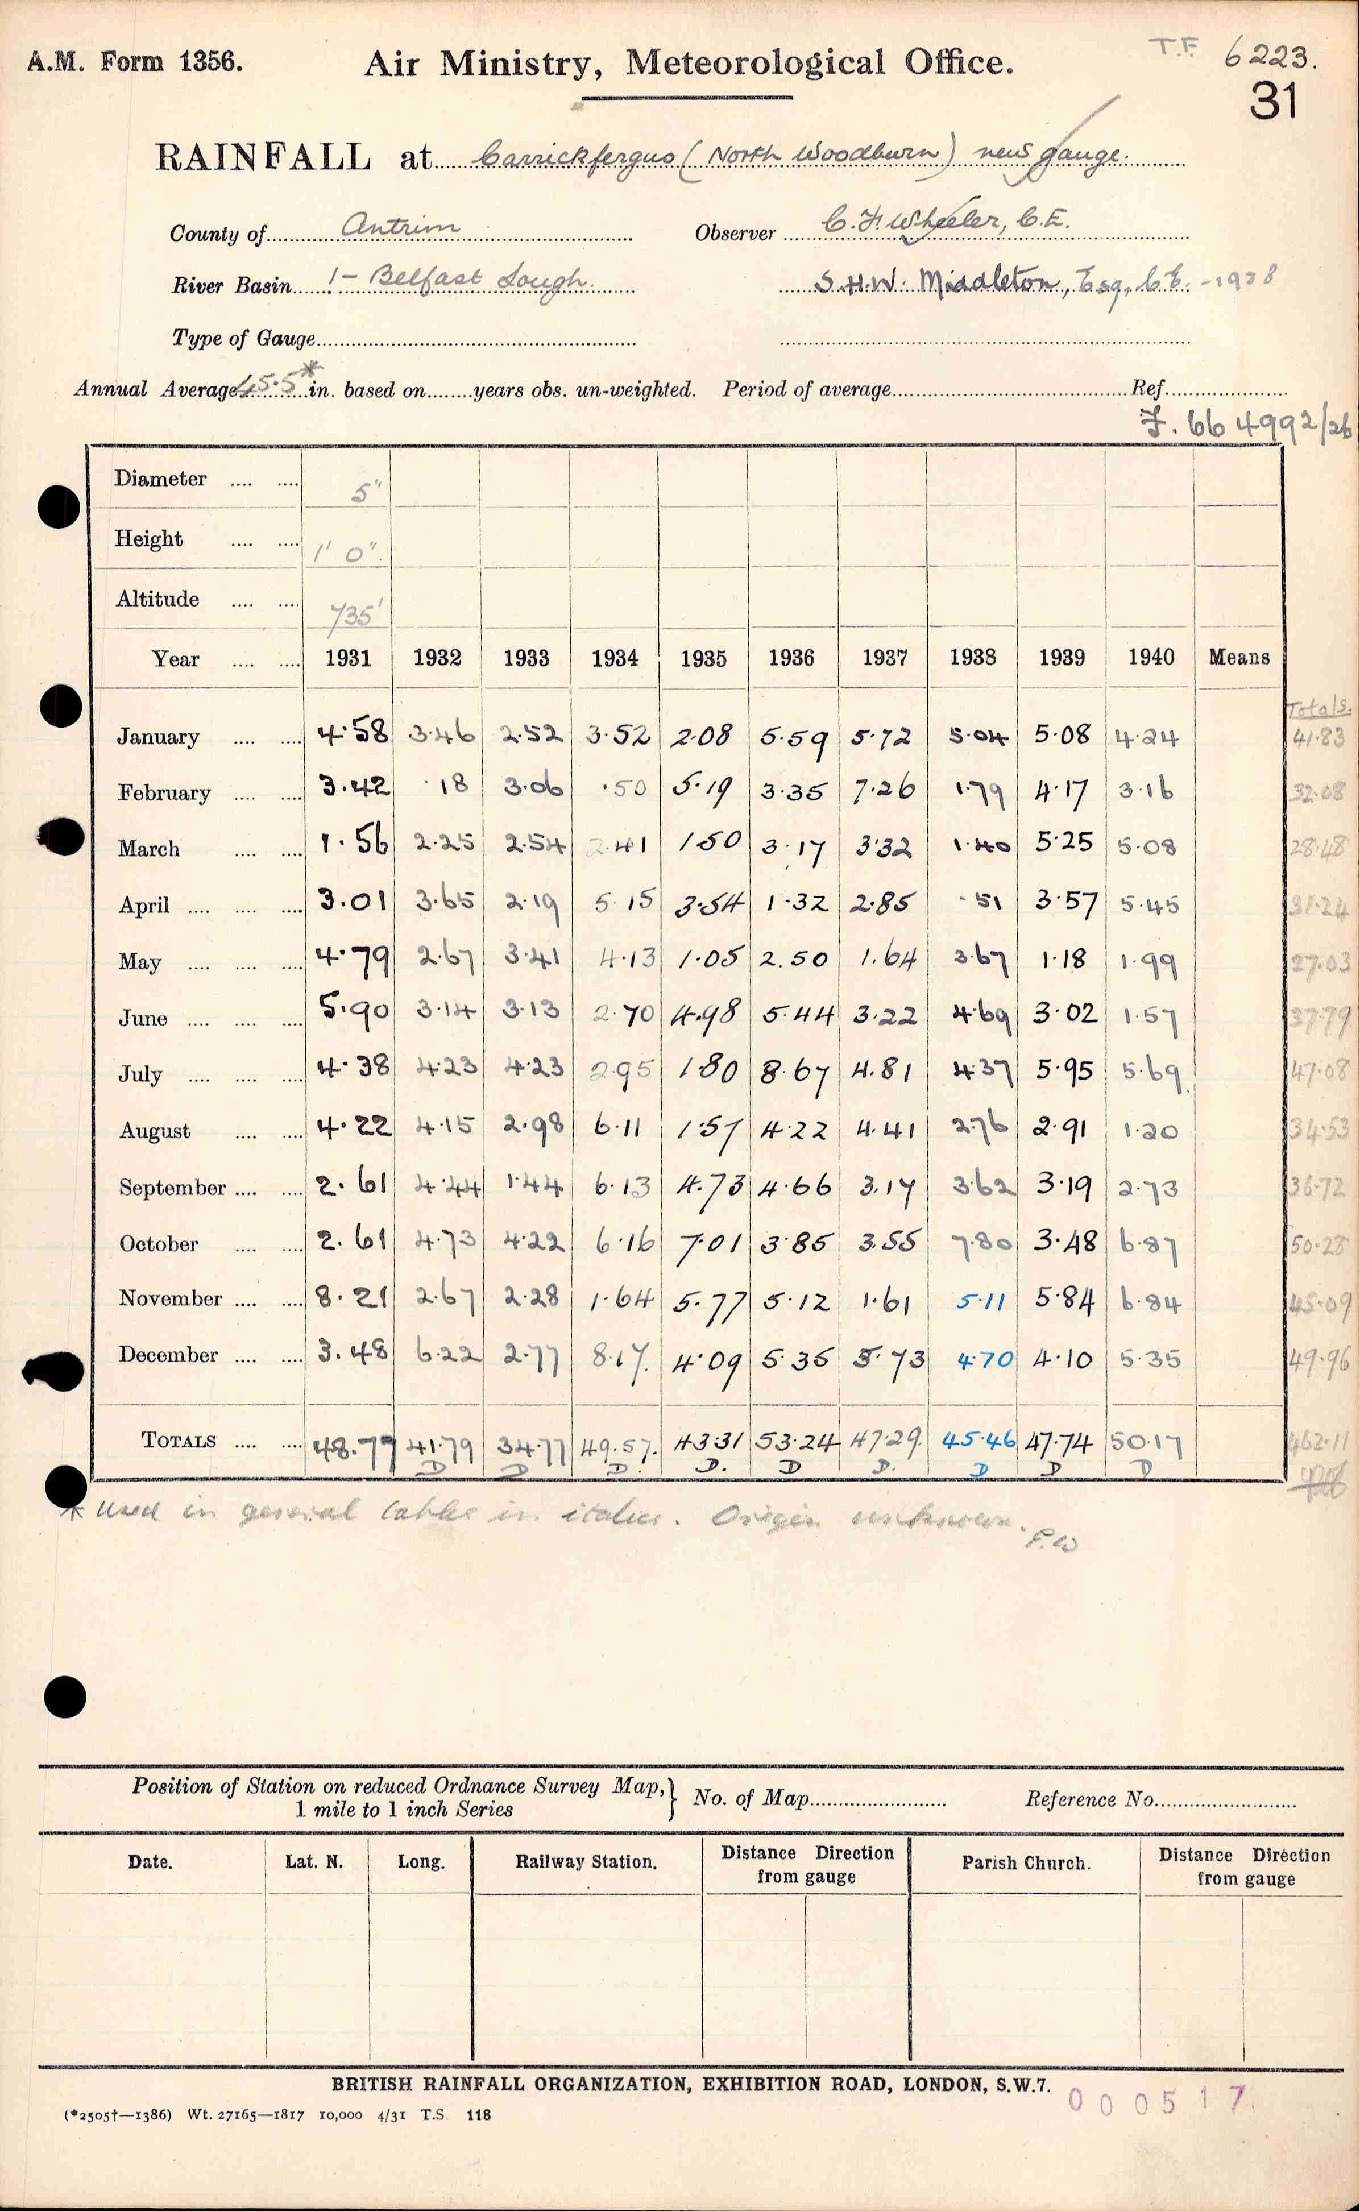 A.M. Form 1356.
Air Ministry, Meteorological Office.
T.F. 6223.
31
RAINFALL at Carrickfergus (North Woodburn) new gauge.
County of Antrim Observer C. F. Wheeler, C.E.
River Basin 1 - Belfast Lough. S.H.W. Middleton, Esq., C.E. - 1938
Type of Gauge
Annual Average 45.5* in. based on years obs. un-weighted. Period of average Ref.
F. 66 4992/26
Diameter 5"
Height 1' 0".
Altitude 735'
Year 1931 1932 1933 1934 1935 1936 1937 1938 1939 1940 Means
Totals.
January 4.58 3.46 2.52 3.52 2.08 5.59 5.72 5.04 5.08 4.24 41.83
February 3.42 .18 3.06 .50 5.19 3.35 7.26 1.79 4.17 3.16 32.08
March 1.56 2.25 2.54 2.41 1.50 3.17 3.32 1.40 5.25 5.08 28.48
April 3.01 3.65 2.19 5.15 3.54 1.32 2.85 .51 3.57 5.45 31.24
May 4.79 2.67 3.41 4.13 1.05 2.50 1.64 3.67 1.18 1.99 27.03
June 5.90 3.14 3.13 2.70 4.98 5.44 3.22 4.69 3.02 1.57 37.79
July 4.38 4.23 4.23 2.95 1.80 8.67 4.81 4.37 5.95 5.69 47.08
August 4.22 4.15 2.98 6.11 1.57 4.22 4.41 2.76 2.91 1.20 34.53
September 2.61 4.44 1.44 6.13 4.73 4.66 3.17 3.62 3.19 2.73 36.72
October 2.61 4.73 4.22 6.16 7.01 3.85 3.55 7.80 3.48 6.87 50.28
November 8.21 2.67 2.28 1.64 5.77 5.12 1.61 5.11 5.84 6.84 45.09
December 3.48 6.22 2.77 8.17. 4.09 5.35 5.73 4.70 4.10 5.35 49.96
TOTALS 48.77 41.79 34.77 49.57. 43.31 53.24 47.29. 45.46 47.74 50.17 462.11
D D D. D. D D. D D D
* used in general table in italics. Origin unknown. P.W
Position of Station on reduced Ordnance Survey Map,} No. of Map Reference No.
1 mile to 1 inch Series
Date. Lat. N. Long. Railway Station. Distance Direction Parish Church. Distance Direction
from gauge from gauge
BRITISH RAINFALL ORGANIZATION, EXHIBITION ROAD, LONDON, S.W.7.
000517
(*2505†—1386) Wt. 27165—1817 10,000 4/31 T.S. 118